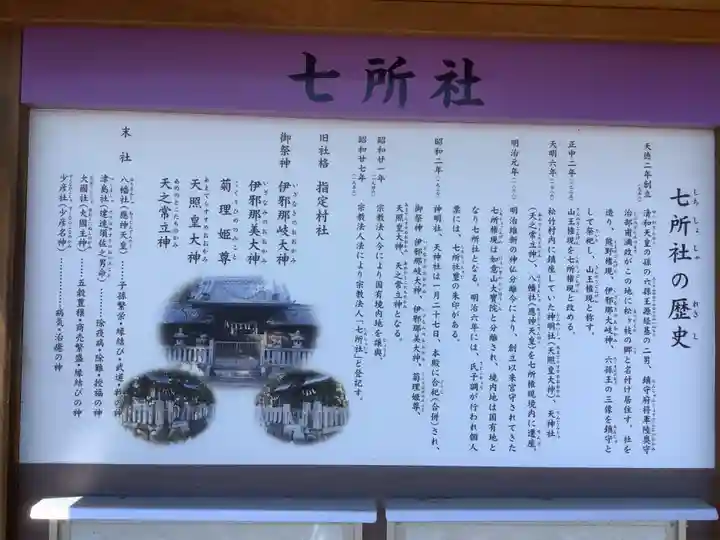 七所社
七所社の歴史
しちしょしゃ
れきし
天徳二年創立
清和天皇の孫の六孫王源経基の二男、鎮守府将軍陸奥守
治部甫満政がこの地に松ヶ枝の郷と名付け居住す。社を
造り、熊野権現、伊邪那大岐神、六孫王の三像を鎮守と
して祭祀し、山王権現と称す。
正中二年
山王権現を七所権現と改める。
天明六年
松竹村内に鎮座していた神明社(天照皇大神)、天神社
(天之常立神)、八幡社(應神天皇)を七所権現境内に遷座。
明治元年
明治維新の神仏分離令により、創立以来宮守されてきた
七所権現は如意山大寶院と分離され、境内地は国有地と
なり七所社となる。明治六年には、氏子調が行われ個人
票には、七所社璽の朱守がある。
昭和二年
神明社、天神社は一月二十七日、本殿に合祀(合併)され、
御祭神 伊邪那岐大神、伊邪那美大神、菊理姫尊、
天照皇大神、天之常立神となる。
昭和廿一年
宗教法人令により国有境内地を譲與。
昭和廿七年
宗教法人法により宗教法人「七所社」と登記す。
旧社格 指定村社
御祭神 伊邪那岐大神
いざなきのおおかみ
伊邪那美大神
いざなみのおおかみ
菊理姫尊
くくりひめのみこと
天照皇大神
あまてらすすめおおかみ
天之常立神
あめのとこたちのかみ
末社
八幡社(應神天皇)……子孫繁栄・縁結び・武道・料の神
津島社(建速須佐之男命)……除疫病・除難・授福の神
大國社(大國主神)……五穀豊穣・商売繁盛・縁結びの神
少彦社(少彦名神)……病気・治癒の神